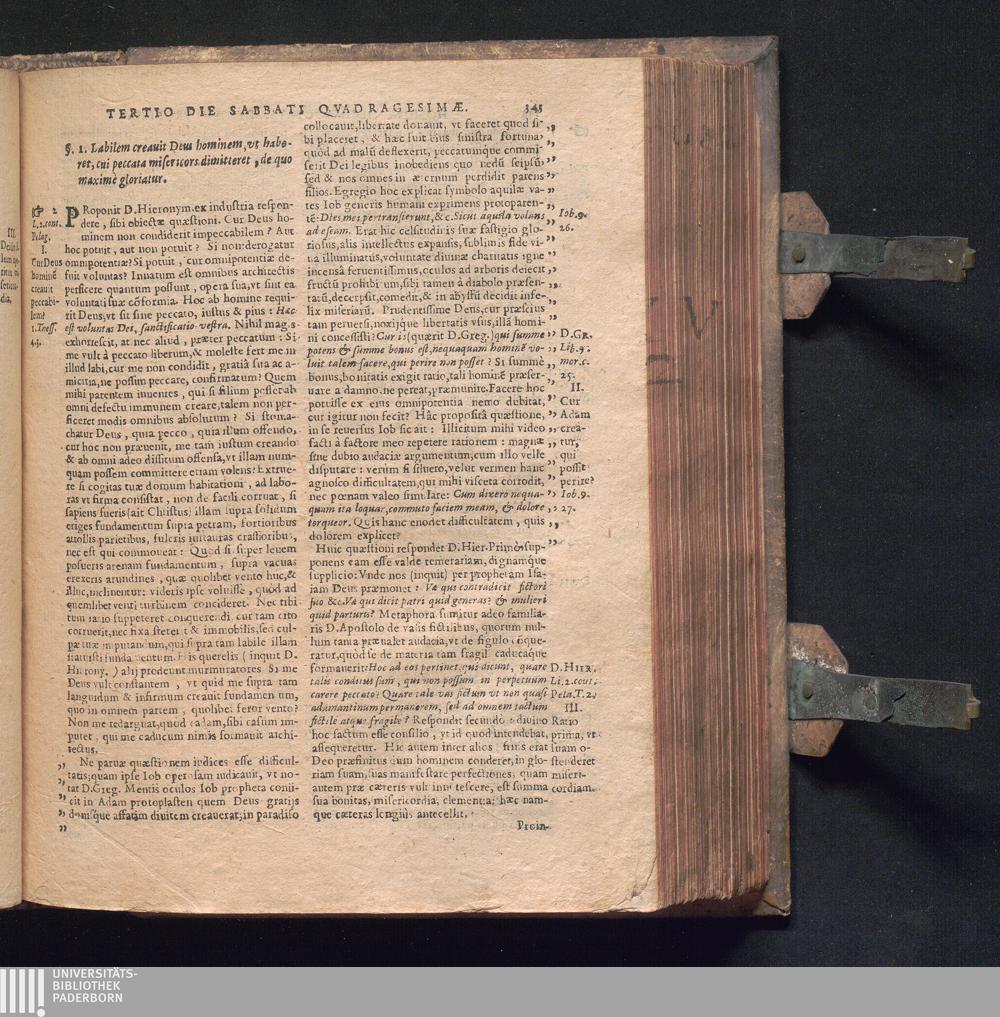 TERTIO DIE SABBATI QVADRAGESIMÆ. 345
§. 1. Labilem creauit Deus hominem, vt habe-
ret, cui peccata misericors dimitteret, de quo
maximè gloriatur.
PRoponit D. Hieronym. ex industria respon-
dere, sibi obiectæ quæstioni. Cur Deus ho-
minem non condiderit impeccabilem? Aut
hoc potuit, aut non potuit? Si non: derogatur
omnipotentiæ? Si potuit, cur omnipotentiæ de-
fuit voluntas? Innatum est omnibus architectis
perficere quantum possunt, opera sua, vt sint ea
voluntati suæ cõformia. Hoc ab homine requi-
rit Deus, vt sit sine peccato, iustus & pius: Hæc
est voluntas Dei, sanctificatio vestra. Nihil mag.s
exhorrescit, at nec aliud, præter peccatum: Si
me vult à peccato liberum, & molestè fert me in
illud labi, cur me non condidit, gratiâ sua ac a-
micitia, ne possim peccare, confirmatum? Quem
mihi parentem inuentes, qui si filium posset ab
omni defectu immunem creare, talem non per-
ficeret modis omnibus absolutum? Si stoma-
chatur Deus, quia pecco, quia illum offendo,
cur hoc non præuenit, me tam iustum creando
& ab omni adeo dissitum offensa, vt illam num-
quam possem committere etiam volens? Extrue-
re si cogitas tuæ domum habitationi, ad labo-
ras vt firma consistat, non de facili corruat, si
sapiens fueris (ait Christus) illam supra solidum
eriges fundamentum supra petram, fortioribus
attollis parietibus, fulcris instauras crassioribus,
nec est qui commoueat: Quod si super leuem
posueris arenam fundamentum, supra vacuas
erexeris arundines, quæ quolibet vento huc, &
illuc, inclinentur: videris ipse voluisse, quod ad
quemlibet venti turbinem concideret. Nec tibi
tum ratio suppeteret conquerendi cur tam cito
corruerit, nec fixa steterit & immobilis, sed cul-
pæ tuæ imputandum, qui supra tam labile illam
statuisti fundamentum. His querelis (inquit D.
Hierony.) alij prodeunt murmuratores. Si me
Deus vult constantem, vt quid me supra tam
languidum & infirmum creauit fundamentum,
quo in omnem partem, quolibet feror vento?
Non me redarguat, quod cadam, sibi casum im-
putet, qui me caducum nimis formauit archi-
tectus.
„ Ne paruæ quæstionem iudices esse difficul-
„ tatis; quam ipse Iob operosam iudicauit, vt no-
„ tat D. Greg. Mentis oculos Iob propheta conii-
„ cit in Adam protoplasten quem Deus gratijs
„ donisque affatim diuitem creauerat, in paradiso
„
III.
☞ 2
L.2.cont.
Pelag.
I.
Cur Deus
hominẽ
creauit
peccabi-
lem?
1.Thess.
4.3.
collocauit, libertate donauit, vt faceret quod si- „
bi placeret, & hæc fuit eius sinistra fortuna, „
quòd ad malũ deflexerit, peccatumque commi- „
serit Dei legibus inobediens quo nedũ seipsũ, „
sed & nos omnes in æternum perdidit parens „
filios. Egregio hoc explicat symbolo aquilæ va- „
tes Iob generis humani exprimens protoparen- „
tẽ: Dies mei pertransierunt, &c. Sicut aquila volans „
ad escam. Erat hic celsitudinis suæ fastigio glo- „
riosus, alis intellectus expansis, sublimis fide vi- „
tâ illuminatus, voluntate diuinæ charitatis igne „
incensâ feruentissimus, oculos ad arboris deiecit „
fructũ prohibitum, sibi tamen à diabolo præsen- „
tatũ, decerpsit, comedit, & in abyssũ decidit infe- „
lix miseriarũ. Prudentissime Deus, cur præscius „
tam peruersi, noxijque libertatis vsus, illã homi- „
ni concessisti? Cur is (quærit D. Greg.) qui summe „
potens & summe bonus est, nequaquam hominẽ vo- „
luit talem facere, qui perire non posset? Si summè „
bonus, bonitatis exigit ratio, tali hominẽ præser- „
uare a damno. ne pereat, præmunire. Facere hoc „
potuisse ex eius omnipotentia nemo debitat, „
cur igitur non fecit? Hâc propositâ quæstione, „
in se reuersus Iob sic ait: Illicitum mihi video „
facti à factore meo repetere rationem: magnæ „
sine dubio audaciæ argumentum, cum illo velle „
disputare: verùm si siluero, velut vermen hanc „
agnosco difficultatem, qui mihi viscera corrodit, „
nec pœnam valeo simulare: Cum dixero nequa- „
quam ita loquar, commuto faciem meam, & dolore „
torqueor. Quis hanc enodet difficultatem, quis „
dolorem explicet? „
Huic quæstioni respondet D. Hier. Primò sup-
ponens eam esse valde temerariam, dignamque
supplicio: Vnde nos (inquit) per prophetam Isa-
iam Deus præmonet: Væ qui contradicit fictori
suo &c. Væ qui dicit patri quid generas? & mulieri
quid parturis? Metaphora sumitur adeo familia-
ris D. Apostolo de vasis fictilibus, quorum nul-
lum tanta præualet audacia, vt de figulo cõque-
ratur, quòd se de materia tam fragili caducaque
formauerit: Hoc ad eos pertinet, qui dicunt, quare
talis conditus sum, qui non possum in perpetuum
carere peccato? Quare tale vas fictum vt non quasi
adamantinum permanerem, sed ad omnem tactum
fictile atque fragile? Respondet secundò: diuino
hoc factum esse consilio, vt id quod intendebat,
assequeretur. Hic autem inter alios finis erat
Deo præfinitus dum hominem conderet, in glo-
riam suam, suas manifestare perfectiones; quam
autem præ cæteris vult innotescere, est summa
sua bonitas, misericordia, clementia: hæc nam-
que cæteras longius antecellit.
Proin-
Iob.9.
26.
D. GR.
Lib.9.
mor.c.
25.
II.
Cur
Adam
crea-
tur,
qui
possit
perire?
Iob.9.
27.
D. HIER.
Li.2.cont.
Pela.T.2.
III.
Ratio
prima, vt
suam o-
stenderet
miseri-
cordiam.
UNIVERSITÄTS-
BIBLIOTHEK
PADERBORN